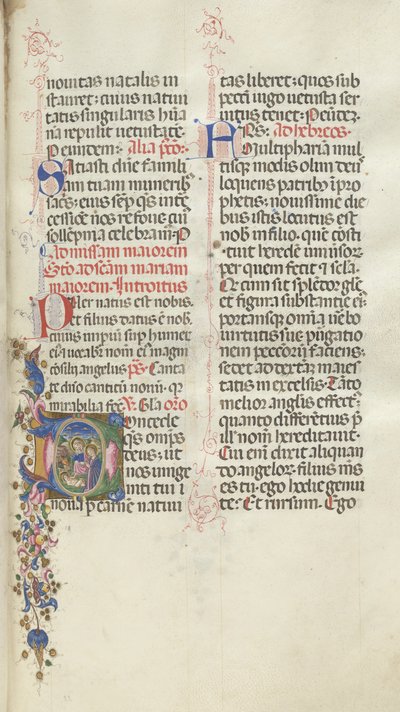 novitas natalis in
stauret: cuius natiui
tatis singularis hūa
na repulit uetustatē
P eundem. Alia p̄co.
Satiasti dn̄e famili
am tuam muneribꝫ
sacris: eius sēp qs̄ inte
cessiōe nos refoue cui
sollēpnia celebram. P
Ad missam maiorem
Stō ad scām mariam
maiorem. Introitus
Puer natus est nobis.
et filius datus ē nob.
cuius imp̄iū sup humer
ei et uocabit nom̄ ei magni
cōsilij angelus p̄s. Canta
te dn̄o canticū nouū. q̄
mirabilia fec. V. Gla oro
Concede
qs̄ omp̄s
deus: ut
nos unige
niti tui i
noua p̄ carnē natiui
tas liberet: quos sub
peccti iugo uetusta ser
uitus tenet. P eūdez.
Ad hebreos.
Multiphariā mul
tisqꝫ modis olim deus
loquens patribꝫ ī pro
phetis: nouissime die
bus istis locutus est
nob in filio. quē cōsti
tuit heredē uniusor.
per quem fecit ⁊ scla.
Qe cum sit splēdor glē
et figura substantie eiꝰ
portansqꝫ om̄a uerbo
uirtutis sue. p̄urgatio
nem peccorum faciens:
sedet ad dexterā maies
tatis in excelsis. Tāto
melior anglis effectꝰ:
quanto differētius p̄
ill nom̄ hereditauit.
Cui em̄ dixit aliquan
do angelor. filius ms̄
es tu. ego hodie genui
te. Et rursum. Ego